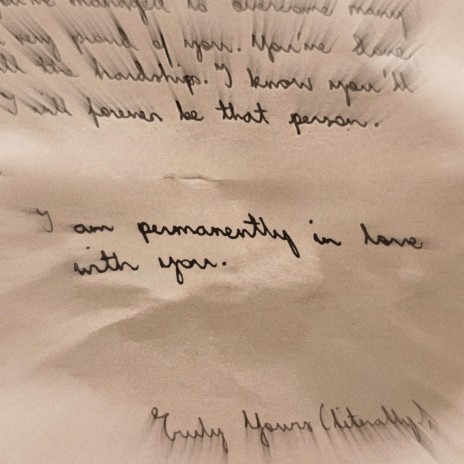 you've managed to overcome many
very proud of you. You've done
all the hardships. I know you'll
I will forever be that person.
I am permanently in love
with you.
Truly Yours (literally)